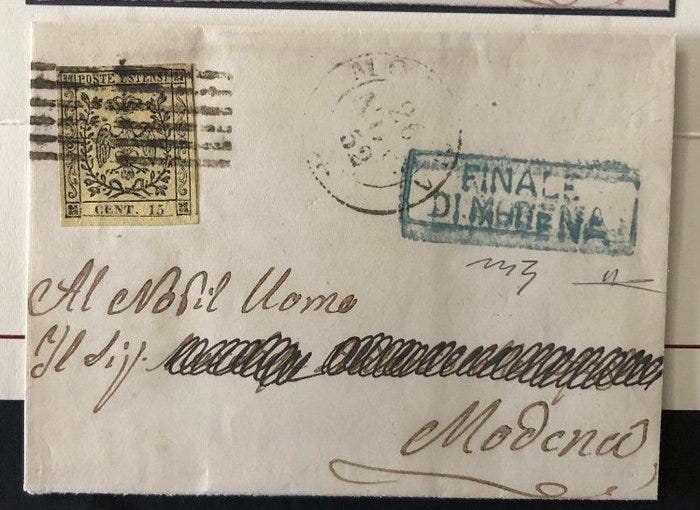 POSTE ESTENSI
CENT. 15
MO
26
52
FINALE
DI MODENA
Al Nobil Uomo
Il Sig.
Modena